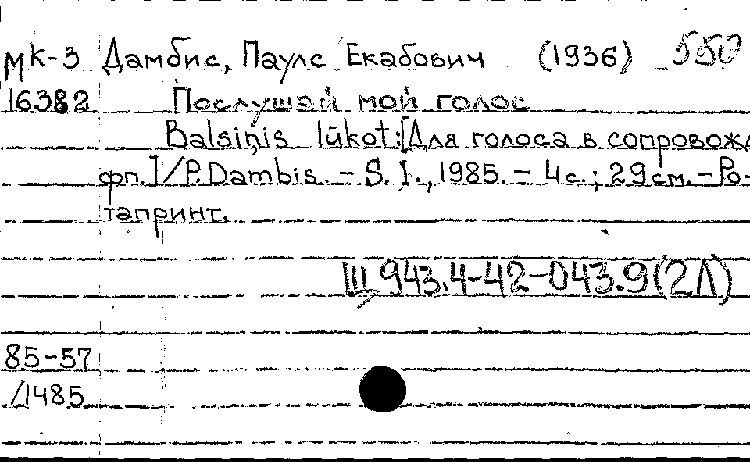 Мк-3 Дамбис, Паулс Екабович (1936) 550
16382 Послушай мой голос
Balsiņis lūkot: [Для голоса в сопровожд
фп.] / P. Dambis. - S. I., 1985. - 4 с.; 29 см. - Ро-
тапринт.
Щ 943.4-42-043.9(2Л)
85-57
/1485